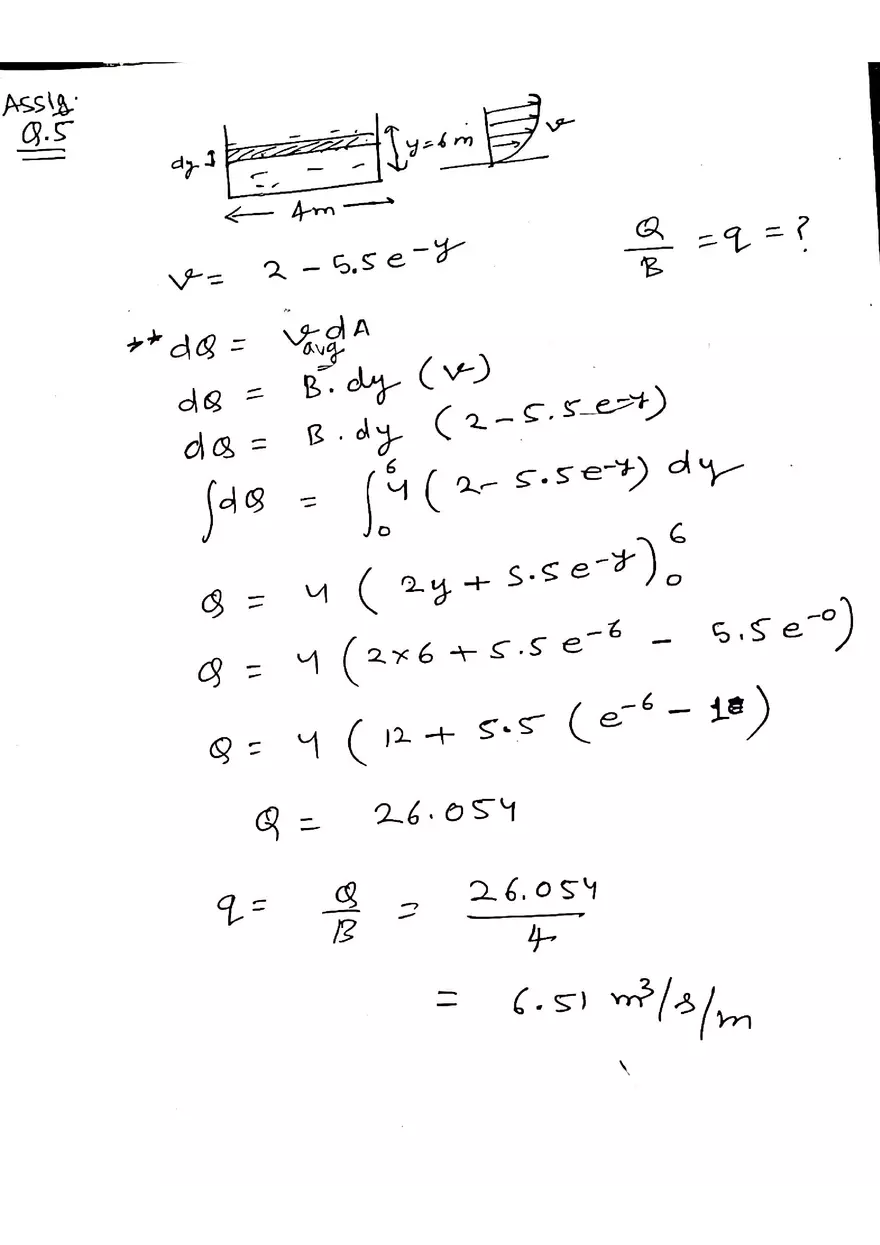 Assig.
Q.5
dy
y = 6 m
v
4m
v = 2 - 5.5 e^-y
Q/B = q = ?
** dQ = v_avg dA
dQ = B. dy (v)
dQ = B. dy (2 - 5.5 e^-y)
∫dQ = ∫_0^6 4 (2 - 5.5 e^-y) dy
Q = 4 ( 2y + 5.5 e^-y)_0^6
Q = 4 (2×6 + 5.5 e^-6 - 5.5 e^-0)
Q = 4 ( 12 + 5.5 ( e^-6 - 1 )
Q = 26.054
q = Q/B = 26.054/4
= 6.51 m³/s/m